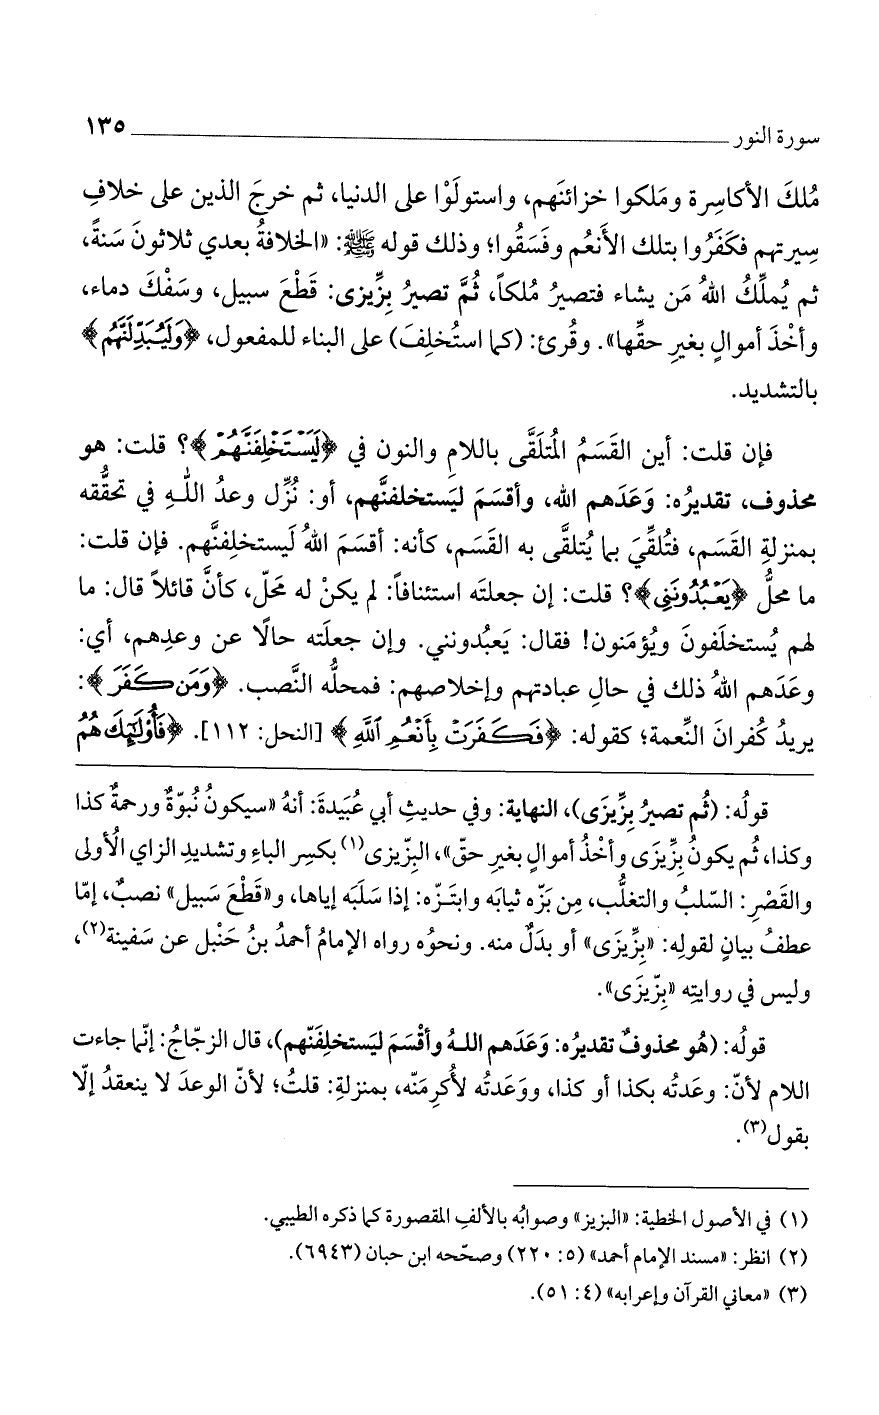 سورة النور ١٣٥
مُلكَ الأكاسِرة ومَلكوا خزائنَهم، واستولَوْا على الدنيا، ثم خرجَ الذين على خلافِ
سِيرتهم فكَفَرُوا بتلك الأَنعُم وفسَقُوا؛ وذلك قوله ﷺ: «الخلافةُ بعدي ثلاثونَ سَنةً،
ثم يُملِّكُ اللهُ مَن يشاء فتصيرُ مُلكاً، ثُمَّ تصيرُ بِزِّيزى: قَطْعَ سبيل، وسَفْكَ دماء،
وأخْذَ أموالٍ بغيرِ حقِّها». وقُرئ: (كما استُخلِفَ) على البناء للمفعول، ﴿وَلَيُبَدِّلَنَّهُم﴾
بالتشديد.
فإن قلت: أين القَسَمُ المُتلَقَّى باللامِ والنون في ﴿لَيَسْتَخْلِفَنَّهُمْ﴾؟ قلت: هو
محذوف، تقديرُه: وَعَدَهم الله، وأقسَمَ ليَستخلفنَّهم، أو: نُزِّل وعدُ اللـهِ في تحقُّقه
بمنزلةِ القَسَم، فتُلقِّيَ بما يُتلقَّى به القَسَم، كأنه: أقسَمَ اللهُ لَيستخلِفنَّهم. فإن قلت:
ما محلُّ ﴿يَعْبُدُونَنِي﴾؟ قلت: إن جعلتَه استئنافاً: لم يكنْ له مَحَلّ، كأنَّ قائلاً قال: ما
لهم يُستخلَفونَ ويُؤمَنون! فقال: يَعبُدونني. وإن جعلَته حالًا عن وعدِهم، أي:
وعَدَهم اللهُ ذلك في حالِ عبادتهم وإخلاصهم: فمحلُّه النَّصب. ﴿وَمَن كَفَرَ﴾:
يريدُ كُفرانَ النِّعمة؛ كقوله: ﴿فَكَفَرَتْ بِأَنْعُمِ اللَّهِ﴾ [النحل: ١١٢]. ﴿فَأُوْلَئِكَ هُمُ
قولُه: (ثُم تصيرُ بِزِّيزَى)، النهاية: وفي حديثِ أبي عُبَيدةَ: أنهُ «سيكونُ نُبوّةٌ ورحمةٌ كذا
وكذا، ثُم يكونُ بِزِّيزَى وأخْذُ أموالٍ بغيرِ حقّ»، البِزّيزى(١) بكسرِ الباءِ وتشديدِ الزاي الأُولى
والقَصْرِ: السّلبُ والتغلُّب، مِن بَزّه ثيابَه وابتَزّه: إذا سَلَبَه إياها، و«قَطْعَ سَبيل» نصبٌ، إمّا
عطفُ بيانٍ لقولِه: «بِزِّيزَى» أو بدَلٌ منه. ونحوُه رواه الإمامُ أحمدُ بنُ حَنْبل عن سَفينة(٢)،
وليس في روايتِه «بِزّيزَى».
قولُه: (هُو محذوفٌ تقديرُه: وَعَدَهم اللـهُ وأقْسَمَ ليَستخلِفَنّهم)، قال الزجّاجُ: إنّما جاءت
اللام لأنّ: وعَدتُه بكذا أو كذا، ووَعَدتُه لأُكرِمَنّه، بمنزلةِ: قلتُ؛ لأنّ الوعدَ لا ينعقدُ إلّا
بقول(٣).
(١) في الأصول الخطية: «البزيز» وصوابُه بالألفِ المقصورة كما ذكره الطيبي.
(٢) انظر: «مسند الإمام أحمد» (٥: ٢٢٠) وصحّحه ابن حبان (٦٩٤٣).
(٣) «معاني القرآن وإعرابه» (٤: ٥١).